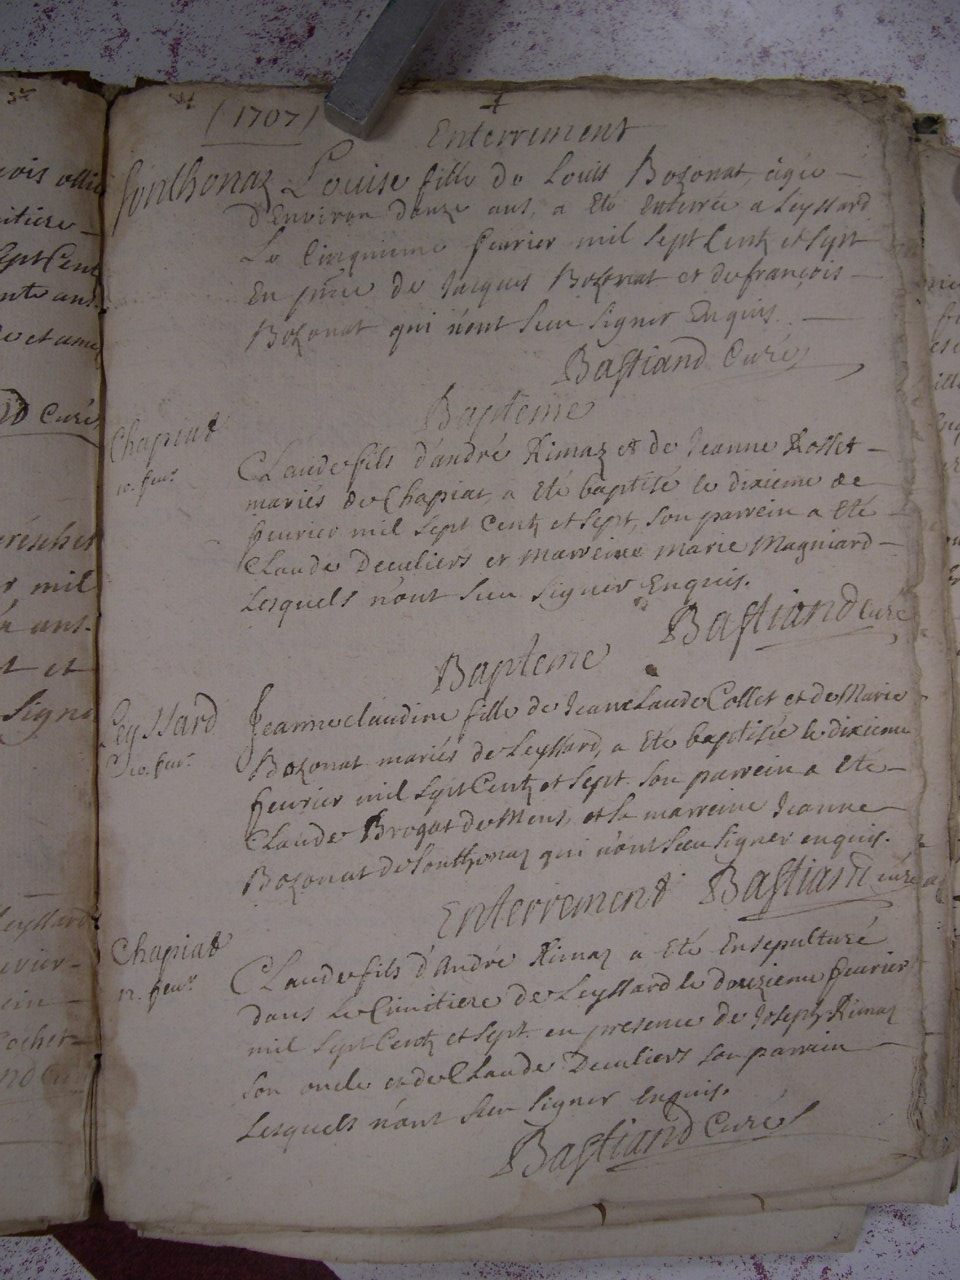 (1707)
Enterrement
Sonthonaz Louise fille de Louis Bozonat, agée
d'Environ douze ans, a Eté Enterrée a Leyssard
Le Cinquieme fevrier mil Sept Centz et Sept
En pñce de Jacques Bozonat et de françois
Bozonat qui n'ont Sceu Signer Enquis.
Bastiand Curé
Bapteme
Chapiat
10. fevr
Claude fils d'andré Rimaz et de Jeanne Rosset
mariés de Chapiat, a Eté baptisé le dixieme de
fevrier mil Sept Centz et Sept, son parrein a Eté
Claude Deculiers et marreine marie Magniard
Lesquels n'ont Sceu Signer Enquis.
Bastiand Curé
Bapteme
Leyssard
10. fevr
Jeanne claudine fille de Jean Claude Collet et de Marie
Bozonat mariés de Leyssard, a Eté baptisée le dixieme
fevrier mil Sept Centz et Sept son parrein a Eté
Claude Brogat de Mens, et sa marreine Jeanne
Bozonat de Sonthonaz qui n'ont Sceu Signer enquis.
Bastiand curé
Enterrement
Chapiat
12. fevr
Claude fils d'André Rimaz a Eté Ensepulturé
dans le Cimitiere de Leyssard le douzieme fevrier
mil Sept Centz et Sept en presence de Joseph Rimaz
son oncle et de Claude Deculiers son parrein
Lesquels n'ont Sceu Signer enquis.
Bastiand Curé